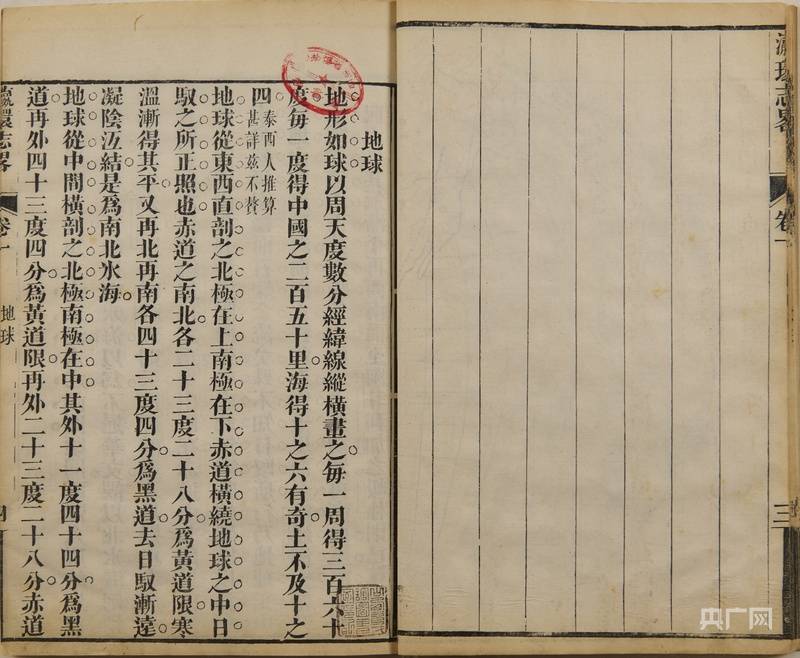 瀛環志畧
卷一
三
地球
地形如球以周天度數分經緯線縱橫畫之每一周得三百六十
度每一度得中國之二百五十里海得十之六有奇土不及十之
四泰西人推算
甚詳茲不贅
地球從東西直剖之北極在上南極在下赤道橫繞地球之中日
馭之所正照也赤道之南北各二十三度二十八分為黃道限寒
溫漸得其平又再北再南各四十三度四分為黑道去日馭漸遠
凝陰沍結是為南北氷海
地球從中間橫剖之北極南極在中其外十一度四十四分為黑
道再外四十三度四分為黃道限再外二十三度二十八分赤道
瀛環志畧
卷一
地球
四
央广网